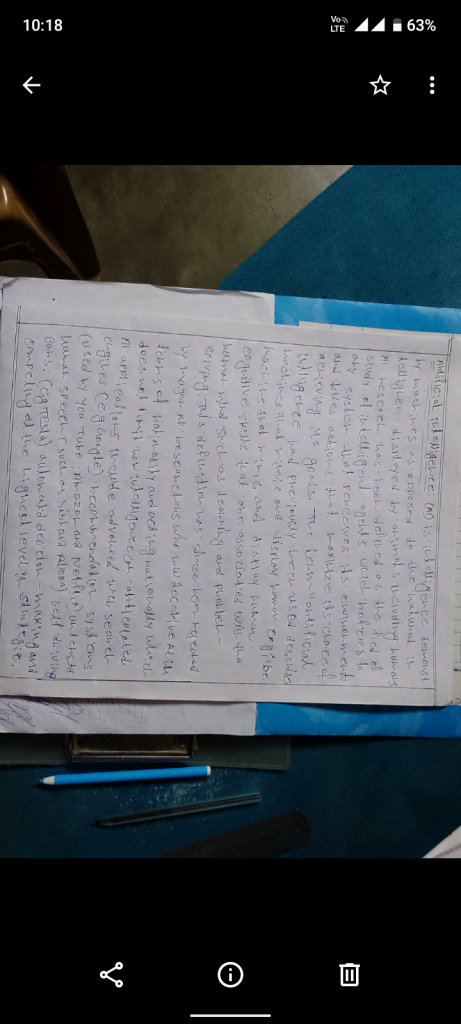 10:18
Vo))
LTE
63%
Artificial intelligence (AI) is intelligence demonst
by machines as opposed to the natural in
telligence displayed by animals including humans
AI research has been defined as the field of
study of intelligent agents which refers to
any system that perceives its environment
and takes actions that maximize its chance of
achieving its goals. The term "artificial
intelligence" had previously been used describe
machines that mimic and display human
machines that mimic and display human
cognitive skills that are associated with the
human mind such as learning and problem-
solving. This definition has since been rejected
by major AI researchers who now describe AI in
terms of rationality and acting rationally which
does not limit how intelligence can articulated
AI applications include advanced web search
engines (eg google) recommendation systems
(used by You Tube, Amazon and Netflix) understand
human speech (such as Siri and Alexa) self driving
cars, (eg Tesla) automated decision making and
competing at the highest level in strategic